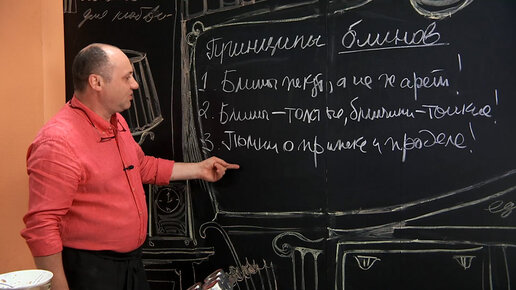 для колбас
Принципы блинов
1. Блины пекут, а не жарят!
2. Блины – толстые, блинчики – тонкие!
3. Помни о припёке и проделе!
ед